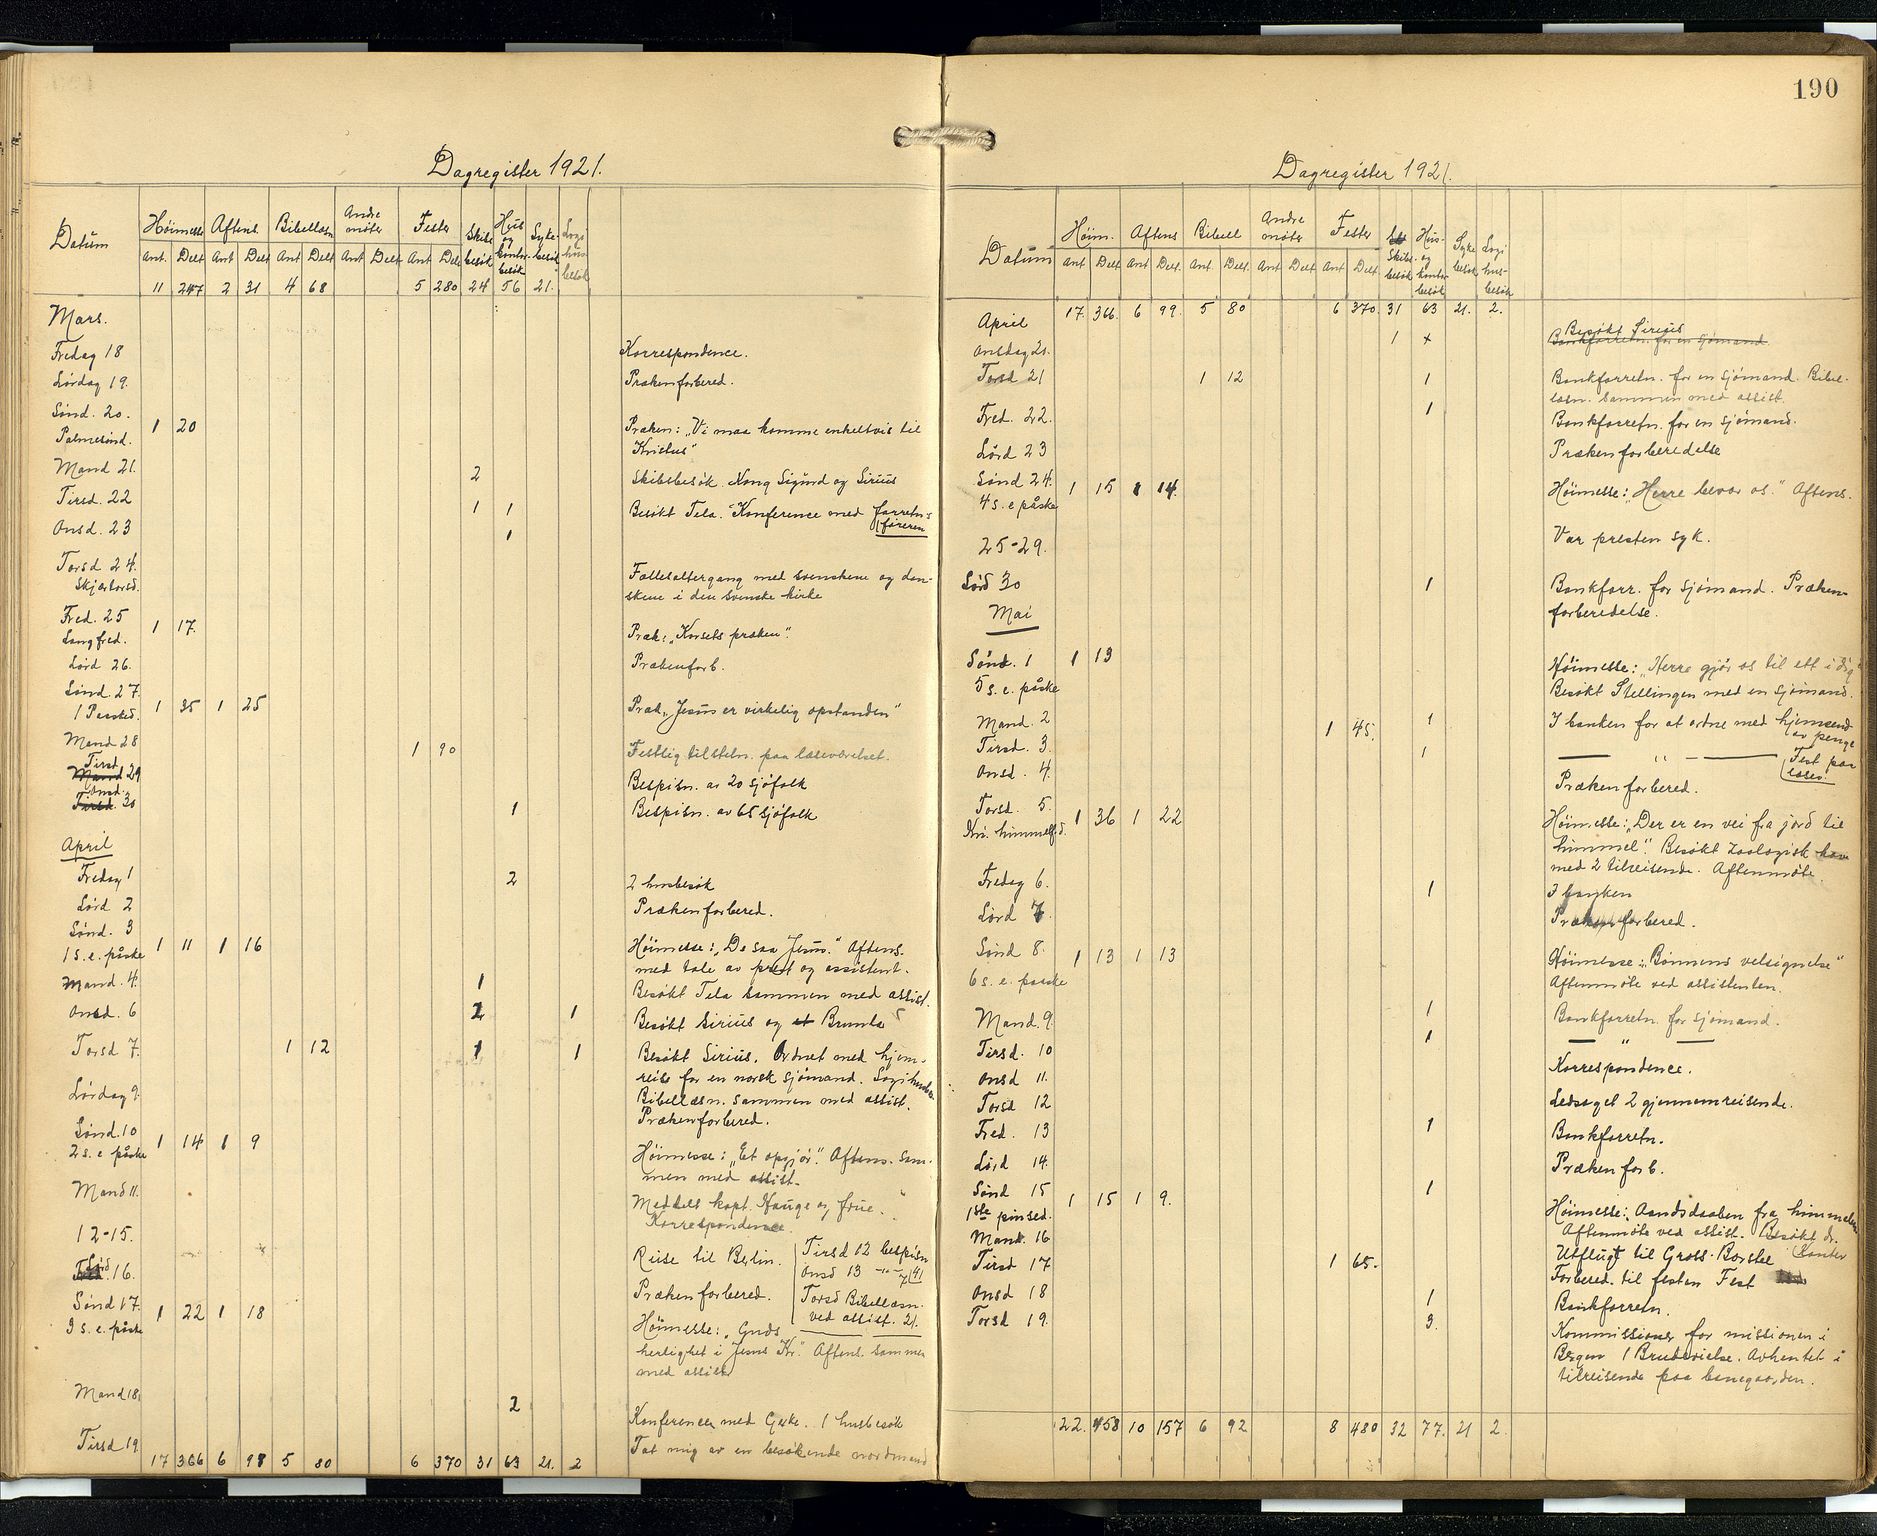 190
Dagregister 1921.
Datum Høimesse Aftens. Bibellæsn Andre møter Fester Skibsbesøk Hus og kontorbesøk Sykebesøk Logihusbesøk
Ant. Delt Ant Delt Ant Delt Ant Delt Ant Delt
11 247 2 31 4 68 5 280 24 56 21.
Mars.
Fredag 18 Korrespondence.
Lørdag 19. Prækenforbered.
Sønd. 20.
Palmesønd. 1 20 Præken: "Vi maa komme enkeltvis til
Kristus"
Mand 21. 2 Skibsbesøk. Kong Sigurd og Sirius
Tirsd. 22 1 1 Besøkt Tela. Konference med forretn:s
føreren
Onsd. 23 1
Torsd 24.
Skjærtorsd. Fællesaltergang med svenskene og dan-
skene i den svenske kirke
Fred. 25
Langfred. 1 17. Præk: "Korsets præken".
Lørd 26. Prækenforb.
Sønd. 27.
1 Paasked. 1 35 1 25 Præk. "Jesus er virkelig opstanden"
Mand 28 1 90 Festlig tilsteln. paa læseværelset.
Tirsd.
Mand 29 Bespisn. av 20 sjøfolk
Onsd.
Tirsd. 30 1 Bespisn. av 65 sjøfolk
April
Fredag 1 2 2 husbesøk
Lørd 2 Prækenforbered.
Sønd. 3
1 s. e. påske 1 11 1 16 Høimesse: "De saa Jesus." Aftens.
med tale av prest og assistent.
Mand. 4. 1 Besøkt Tela sammen med assist.
Onsd. 6 2 1 Besøkt Sirius og et Brumla
Torsd 7. 1 12 1 1 Besøkt Sirius. Ordnet med hjem-
reise for en norsk sjømand. Logihusbes.
Bibellæsn. sammen med assist.
Lørdag 9. Prækenforbered.
Sønd. 10
2 s. e påske 1 14 1 9 Høimesse: "Et opgjør". Aftens. sam-
men med assist.
Mand 11. Meddelt kapt. Hauge og frue.
Korrespondence
12-15. Reise til Berlin. Tirsd 12 bespisn
Onsd 13 -"-
Lørd
Fred. 16. Prækenforbered. Torsd Bibellæsn.
ved assist. 21.
Sønd 17.
3 s. e. påske 1 22 1 18 Høimesse: "Guds
herlighet i Jesus Kr." Aftens. sammen
med assist
Mand 18. 2 Konference med Gerke. 1 husbesøk
Tirsd 19. Tat mig av en besøkende nordmand
17 366 6 98 5 80 6 370 31 63 21. 2
Dagregister 1921.
Datum Høim. Aftens Bibell Andre møter Fester Skibsbesøk Hus- og kontorbesøk Sykebesøk Logihusbesøk
Ant Delt Ant Delt. Ant. Delt. Ant Delt Ant Delt.
17. 366. 6 99. 5 80 6 370. 31 63 21. 2.
April
Onsdag 20. 1 + Besøkt Sirius
Bankforretn. for en sjømand.
Torsd 21 1 12 1 Bankforretn. for en sjømand. Bibel-
læsn. sammen med assist.
Fred. 22. 1 Bankforretn. for en sjømand.
Lørd 23 Prækenforberedelse
Sønd 24.
4 s. e påske 1 15 1 14. Høimesse: "Herre bevar os." Aftens.
25-29. Var presten syk.
Lørd 30 1 Bankforr. for sjømand. Præken-
forberedelse.
Mai
Sønd. 1
5 s. e. påske 1 13 Høimesse: "Herre gjør os til ett i dig"
Besøkt Stellingen med en sjømand.
Mand. 2 1 45. 1 I banken for at ordne med hjemsend
av penge
Tirsd. 3. 1 — " — Fest paa
læsev.
Onsd. 4. Prækenforbered.
Torsd. 5.
Kri. himmelf.d. 1 36 1 22 Høimesse: "Der er en vei fra jord til
himmel". Besøkt Zoologisk have
med 2 tilreisende. Aftenmøte.
Fredag 6. 1 I banken
Lørd 7. Prækenforbered.
Sønd 8.
6 s. e. påske 1 13 1 13 Høimesse: "Bønnens velsignelse"
Aftenmøte ved assistenten.
Mand. 9. 1 Bankforretn. for sjømand.
Tirsd. 10 1 — " —
Onsd 11. Korrespondence.
Torsd 12 Ledsaget 2 gjennemreisende.
Fred. 13 1 Bankforretn.
Lørd 14. Prækenforb.
Sønd 15
1ste pinsed. 1 15 1 9. 1 Høimesse: Aandsdaaben fra himmelen
Aftenmøte ved assist. Besøkt dr.
Kanter
Mand. 16 Utflugt til Gross-Borstel
Tirsd 17 1 65. Forbered. til festen Fest
Onsd 18 1 Bankforretn.
Torsd 19. 3. Kommissioner for missionen i
Bergen 1 Brudevielse. Avhentet i
tilreisende paa banegaarden.
22. 458 10 157 6 92 8 480 32 77. 21 2.